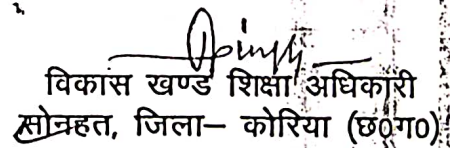 विकास खण्ड शिक्षा अधिकारी
सोनहत, जिला– कोरिया (छ0ग0)